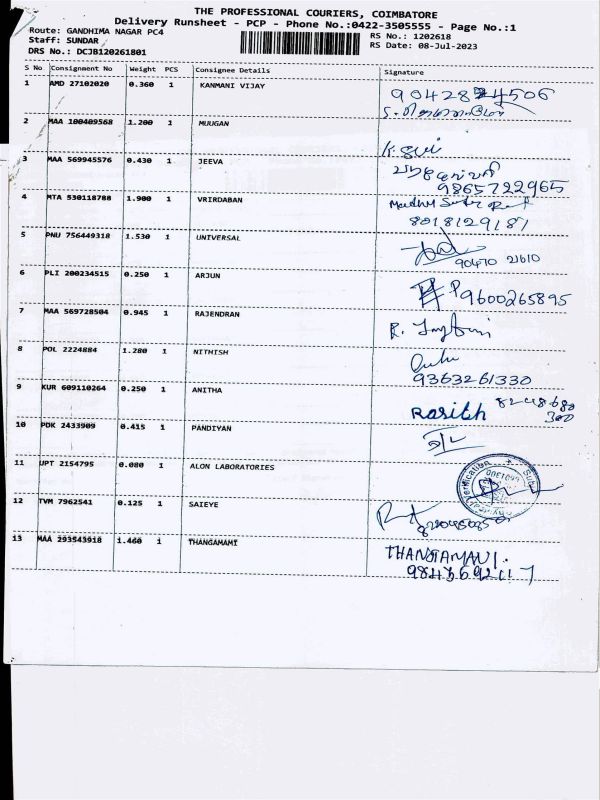 THE PROFESSIONAL COURIERS, COIMBATORE
Delivery Runsheet - PCP - Phone No.:0422-3505555 - Page No.:1
Route: GANDHIMA NAGAR PC4
RS No.: 1202618
Staff: SUNDAR
RS Date: 08-Jul-2023
DRS No.: DCJB120261801
S No Consignment No Weight PCS Consignee Details Signature
1 AMD 27102020 0.360 1 KANMANI VIJAY
2 MAA 100409568 1.200 1 MUUGAN
3 MAA 569945576 0.430 1 JEEVA
9865722965
4 MTA 530118788 1.900 1 VRIRDABAN
8018129187
5 PNU 756449318 1.530 1 UNIVERSAL
90470 21610
6 PLI 200234515 0.250 1 ARJUN
9600265895
7 MAA 569728504 0.945 1 RAJENDRAN
8 POL 2224884 1.280 1 NITHISH
9363261330
9 KUR 609110264 0.250 1 ANITHA
Rasith 8248680
300
10 PDK 2433909 0.415 1 PANDIYAN
11 UPT 2154795 0.080 1 ALON LABORATORIES
12 TVM 7962541 0.125 1 SAIEYE
13 MAA 293543918 1.460 1 THANGAMAMI